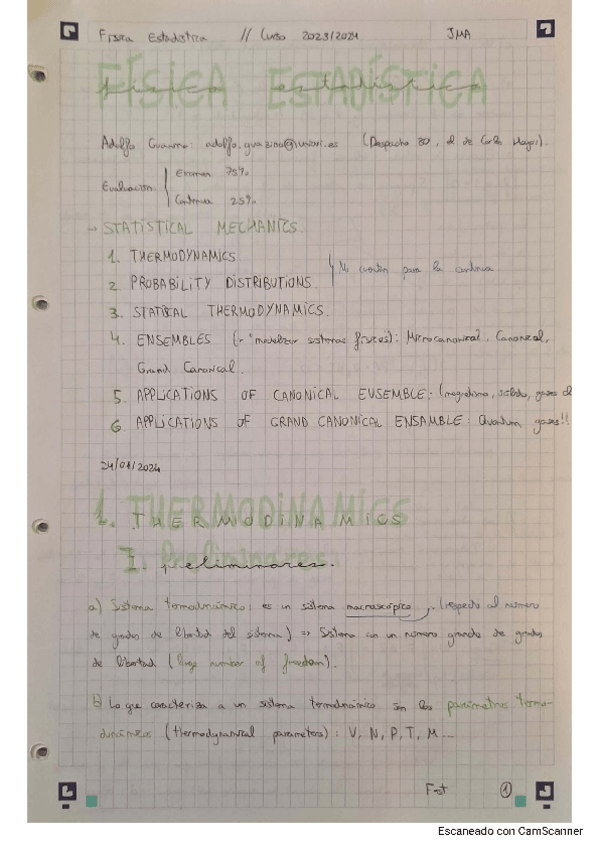 Física Estadística // Curso 2023/2024 JMA
FÍSICA ESTADÍSTICA
física estadística
Adolfo : adolfo. (Despacho , el de Carlos ).
Evaluación
Examen 75%
Continua 25%
→ STATISTICAL MECHANICS
1. THERMODYNAMICS
2. PROBABILITY DISTRIBUTIONS
No cuentan para la continua
3. THERMODYNAMICS.
4. ENSEMBLES ("modelizar sistemas físicos): Microcanonical, Canonical,
Grand Canonical.
5. APPLICATIONS OF CANONICAL ENSEMBLE: (magnetismo, sólido, gases
6. APPLICATIONS OF GRAND CANONICAL ENSAMBLE: Quantum gases!!
24/01/2024
1. THERMODINAMICS
I. Preliminares.
a) Sistema termodinámico: es un sistema macroscópico, (respecto al número
de grados de libertad del sistema) => Sistema con un número grande de grados
de libertad (large number of freedom).
b) Lo que caracteriza a un sistema termodinámico son los parámetros termo-
dinámicos (thermodynamical parameters): V, N, P, T, M...
F-est 1
Escaneado con CamScanner